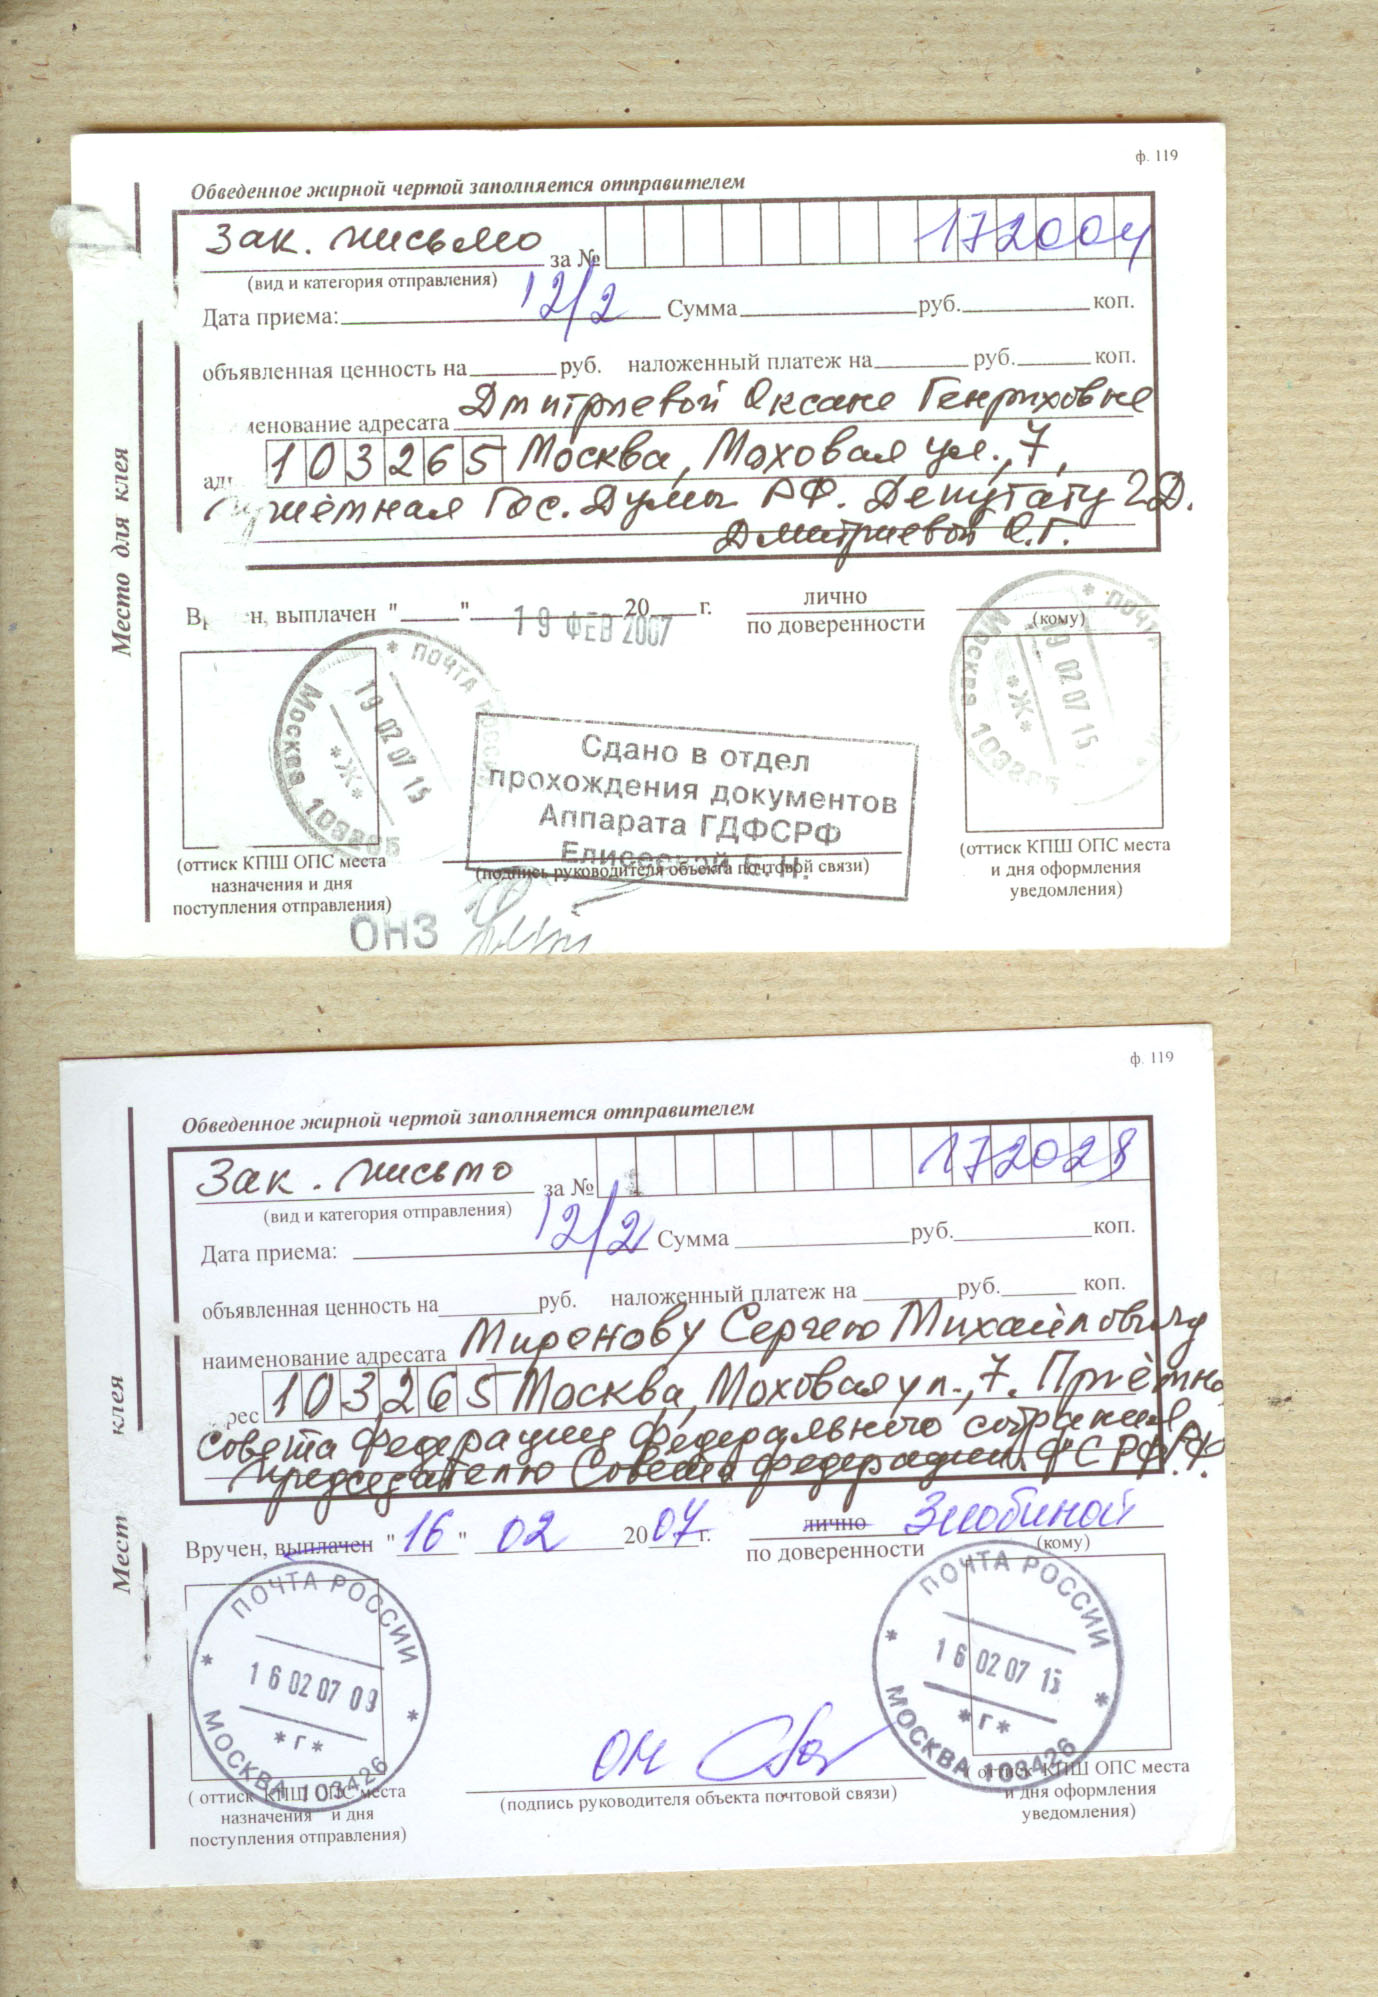 ф. 119
Обведенное жирной чертой заполняется отправителем
Зак. письмо за № 172004
(вид и категория отправления)
Дата приема: 12/2 Сумма руб. коп.
объявленная ценность на руб. наложенный платеж на руб. коп.
менование адресата Дмитриевой Оксане Генриховне
адр 103265 Москва, Моховая ул., 7,
Приёмная Гос. Думы РФ. Депутату ГД.
Дмитриевой О.Г.
Место для клея
Вручен, выплачен " " 19 ФЕВ 2007 20 г. лично
по доверенности
(кому)
* ПОЧТА РОССИИ
19 02 07 15
*Ж*
Москва
* ПОЧТА
19 02 07 15
*Ж*
Москва
Сдано в отдел
прохождения документов
Аппарата ГДФСРФ
Елисеевой Е.Н.
(подпись руководителя объекта почтовой связи)
(оттиск КПШ ОПС места
назначения и дня
поступления отправления)
(оттиск КПШ ОПС места
и дня оформления
уведомления)
ОНЗ
ф. 119
Обведенное жирной чертой заполняется отправителем
Зак. письмо за № 172028
(вид и категория отправления)
Дата приема: 12/2 Сумма руб. коп.
объявленная ценность на руб. наложенный платеж на руб. коп.
наименование адресата Миронову Сергею Михайловичу
рес 103265 Москва, Моховая ул., 7. Приёмная
Совета Федерации Федерального собрания РФ.
Председателю Совета Федерации ФСРФ
Мест клея
Вручен, выплачен "16" 02 2007 г. лично Злобиной
по доверенности
(кому)
ПОЧТА РОССИИ
16 02 07 09
*Г*
МОСКВА 103426
ПОЧТА РОССИИ
16 02 07 15
*Г*
МОСКВА 103426
(подпись руководителя объекта почтовой связи)
( оттиск КПШ ОПС места
назначения и дня
поступления отправления)
( оттиск КПШ ОПС места
и дня оформления
уведомления)